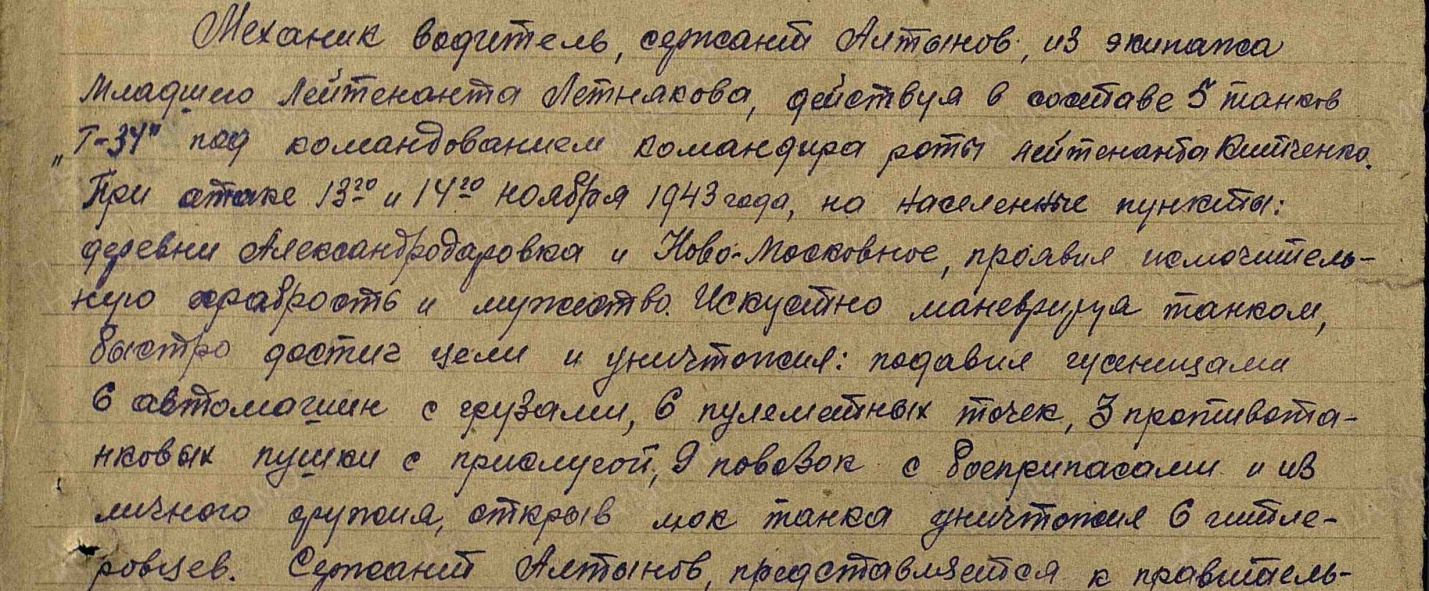 Механик водитель, сержант Алтынов, из экипажа
Младшего Лейтенанта Летнякова, действуя в составе 5 танков
"Т-34" под командованием командира роты лейтенанта Китченко.
При атаке 13го и 14го ноября 1943 года, на населенные пункты:
деревни Александродаровка и Ново-Московное, проявил исключитель-
ную храбрость и мужество. Искустно маневрируя танком,
быстро достиг цели и уничтожил: подавил гусеницами
6 автомашин с грузами, 6 пулеметных точек, 3 противота-
нковых пушки с прислугой, 9 повозок с боеприпасами и из
личного оружия, открыв люк танка уничтожил 6 гитле-
ровцев. Сержант Алтынов, представляется к правитель-